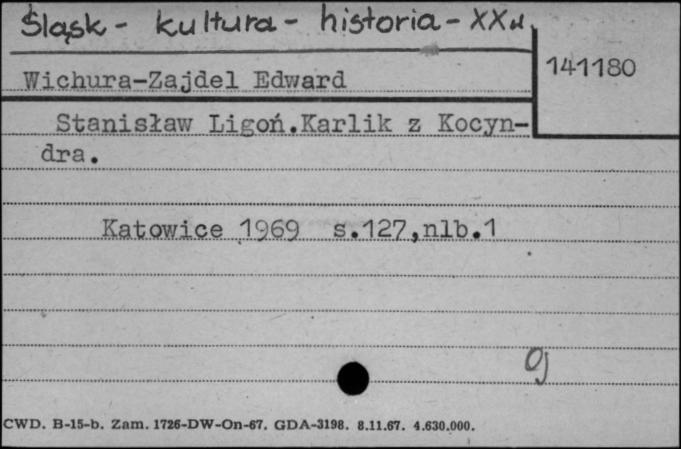 Śląsk - kultura - historia - XX w.
141180
Wichura-Zajdel Edward
Stanisław Ligoń.Karlik z Kocyn-
dra.
Katowice 1969 s.127,nlb.1
CWD. B-15-b. Zam. 1726-DW-On-67. GDA-3198. 8.11.67. 4.630.000.